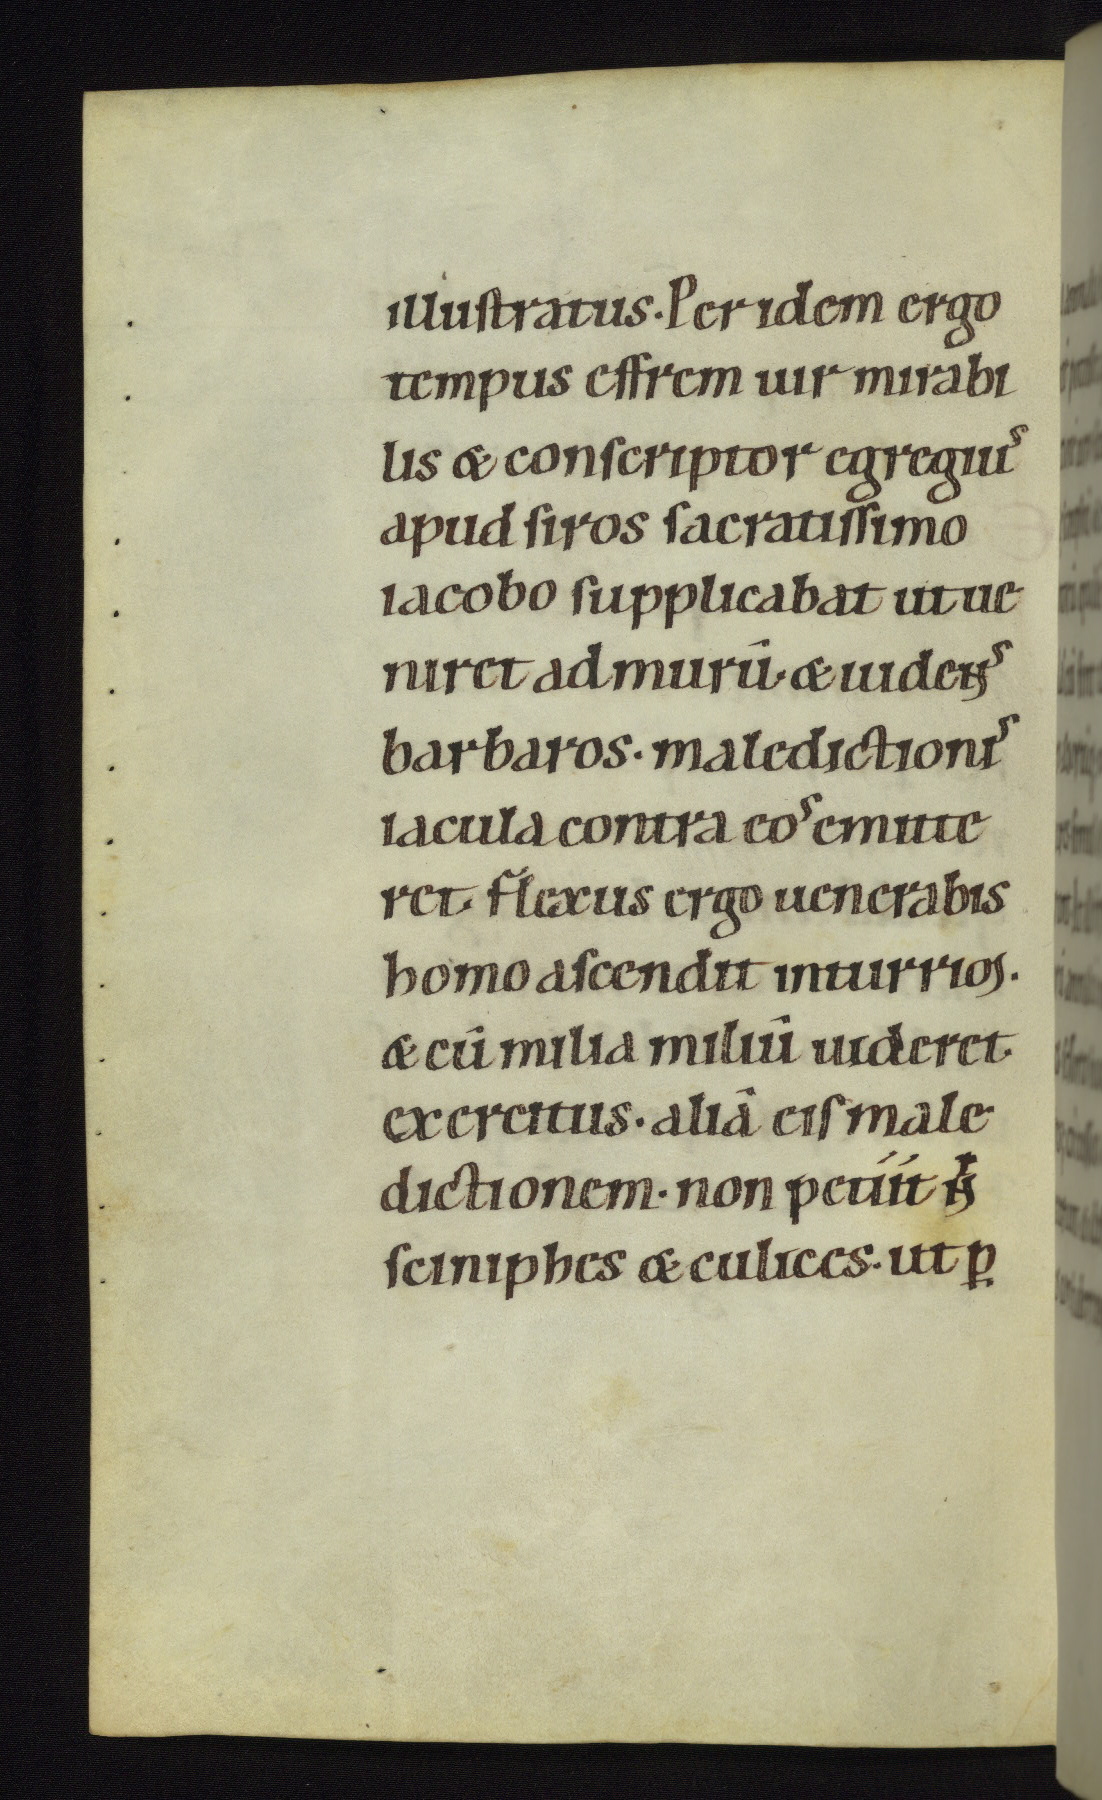 illustratus. Per idem ergo
tempus effrem uir mirabi
lis & conscriptor egregius
apud siros sacratissimo
iacobo supplicabat ut ue
niret ad murū. & uidens
barbaros. maledictionis
iacula contra eos emitte
ret. flexus ergo uenerabis
homo ascendit inturrios.
& cū milia miliū uideret
exercitus. aliā eis male
dictionem. non petiit
sciniphes & culices. ut ꝑ